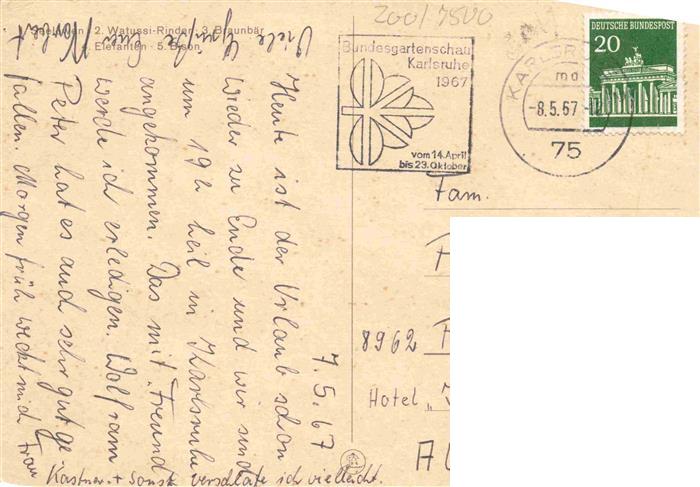 2. Watussi-Rinder · 3. Braunbär
Elefanten · 5. Bison
7.5.67
Heute ist der Urlaub schon
wieder zu Ende und wir sind
um 19h heil in Karlsruhe
angekommen. Das mit „Freund"
werde ich erledigen. Wolfram
Peter hat es auch sehr gut ge-
fallen. Morgen früh weckt mich Frau
Kastner + sonst verschlafe ich vielleicht.
Viele Grüße Euer Norbert
200/7500
Bundesgartenschau
Karlsruhe
1967
vom 14. April
bis 23. Oktober
KARLSR
ma
-8.5.67-
75
DEUTSCHE BUNDESPOST
20
Fam.
8962
Hotel „